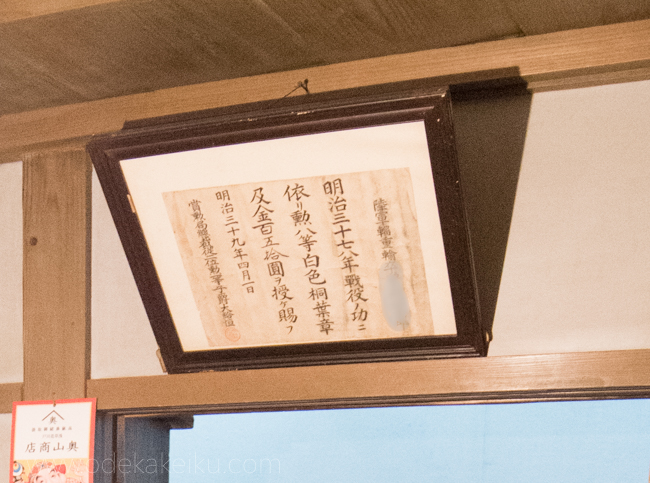 陸軍輜重輸
明治三十七八年戰役ノ功ニ
依リ勲八等白色桐葉章
及金百五拾圓ヲ授ケ賜フ
明治三十九年四月一日
賞勲局總裁従二位勲一等子爵大給恒
奥
奥山商店
odekakeiku.com